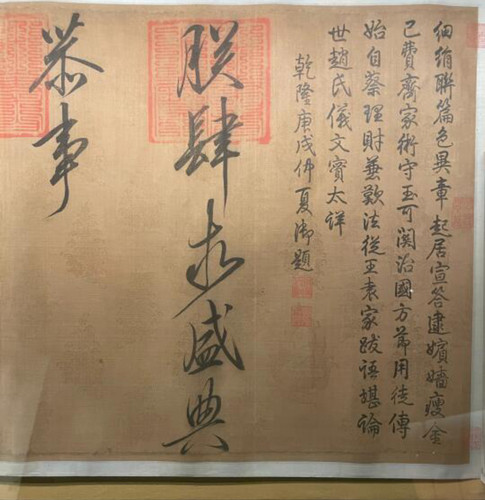 細絹聯篇色異章起居宣答逮嬪嬙瘦金
已費齊家術守玉可関治國方苐用徒傳
始自蔡理財兼歎法從王袁家跋語堪論
世趙氏儀文實太詳
乾隆庚戌仲夏御題
朕肆求盛典
恭事